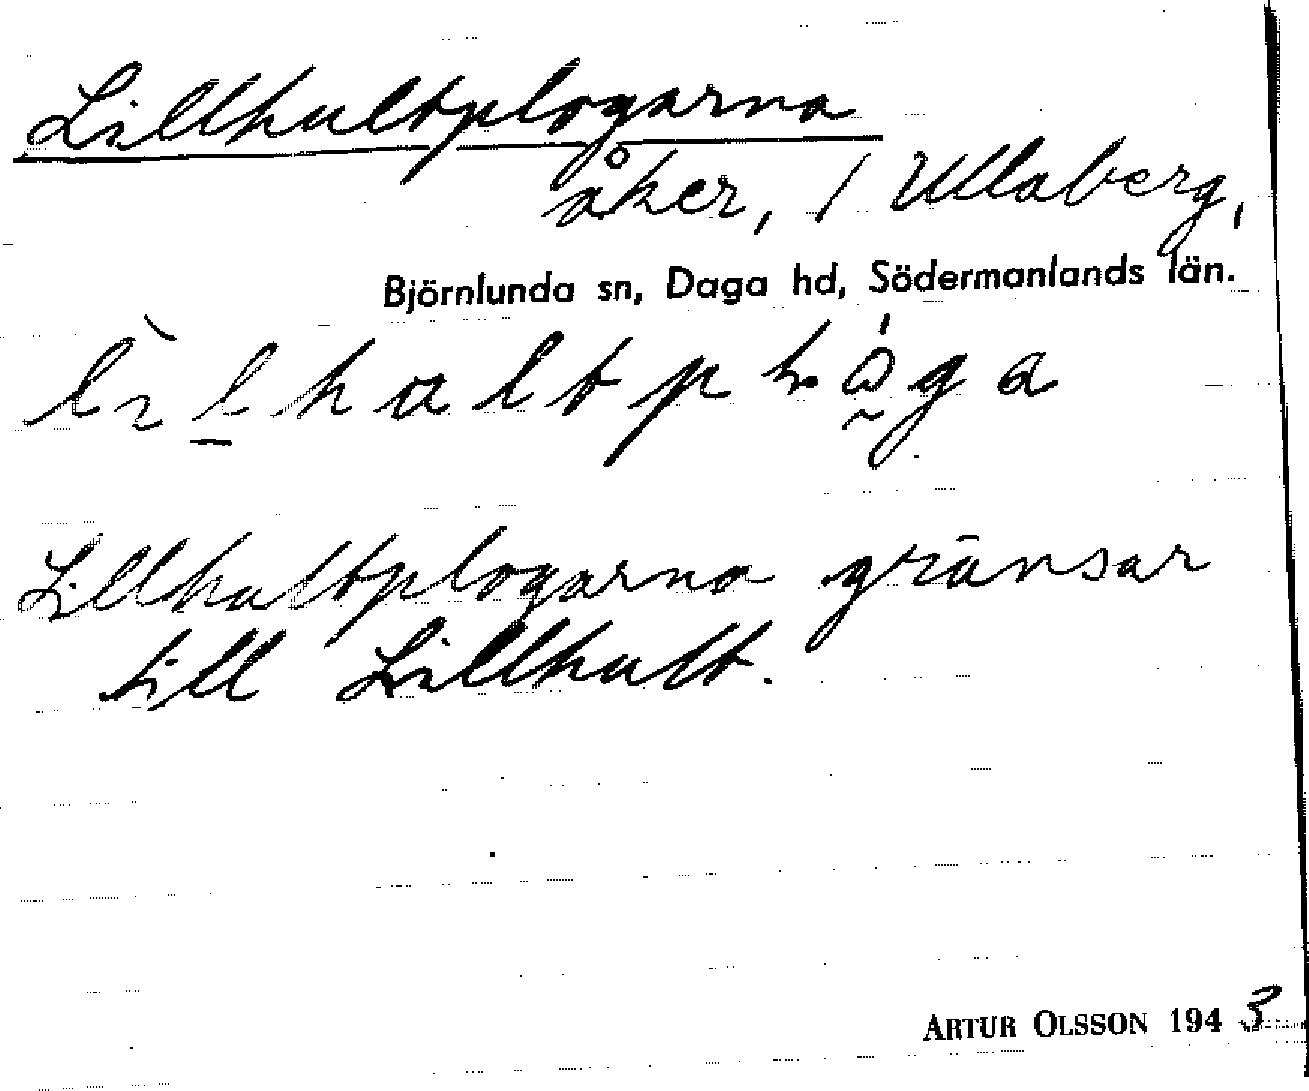 Lillhultplogarna
åker, / Ullaberg,
Björnlunda sn, Daga hd, Södermanlands län.
Lillhultplogarna gränsar
till Lillhult.
ARTUR OLSSON 1943